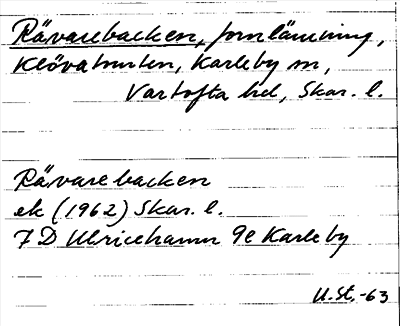 Rävarebacken, fornlämning,
Klövatomten, Karleby sn,
Vartofta hd, Skar. l.
Rävarebacken
ek (1962) Skar. l.
7 D Ulricehamn 9e Karleby
U.St.-63